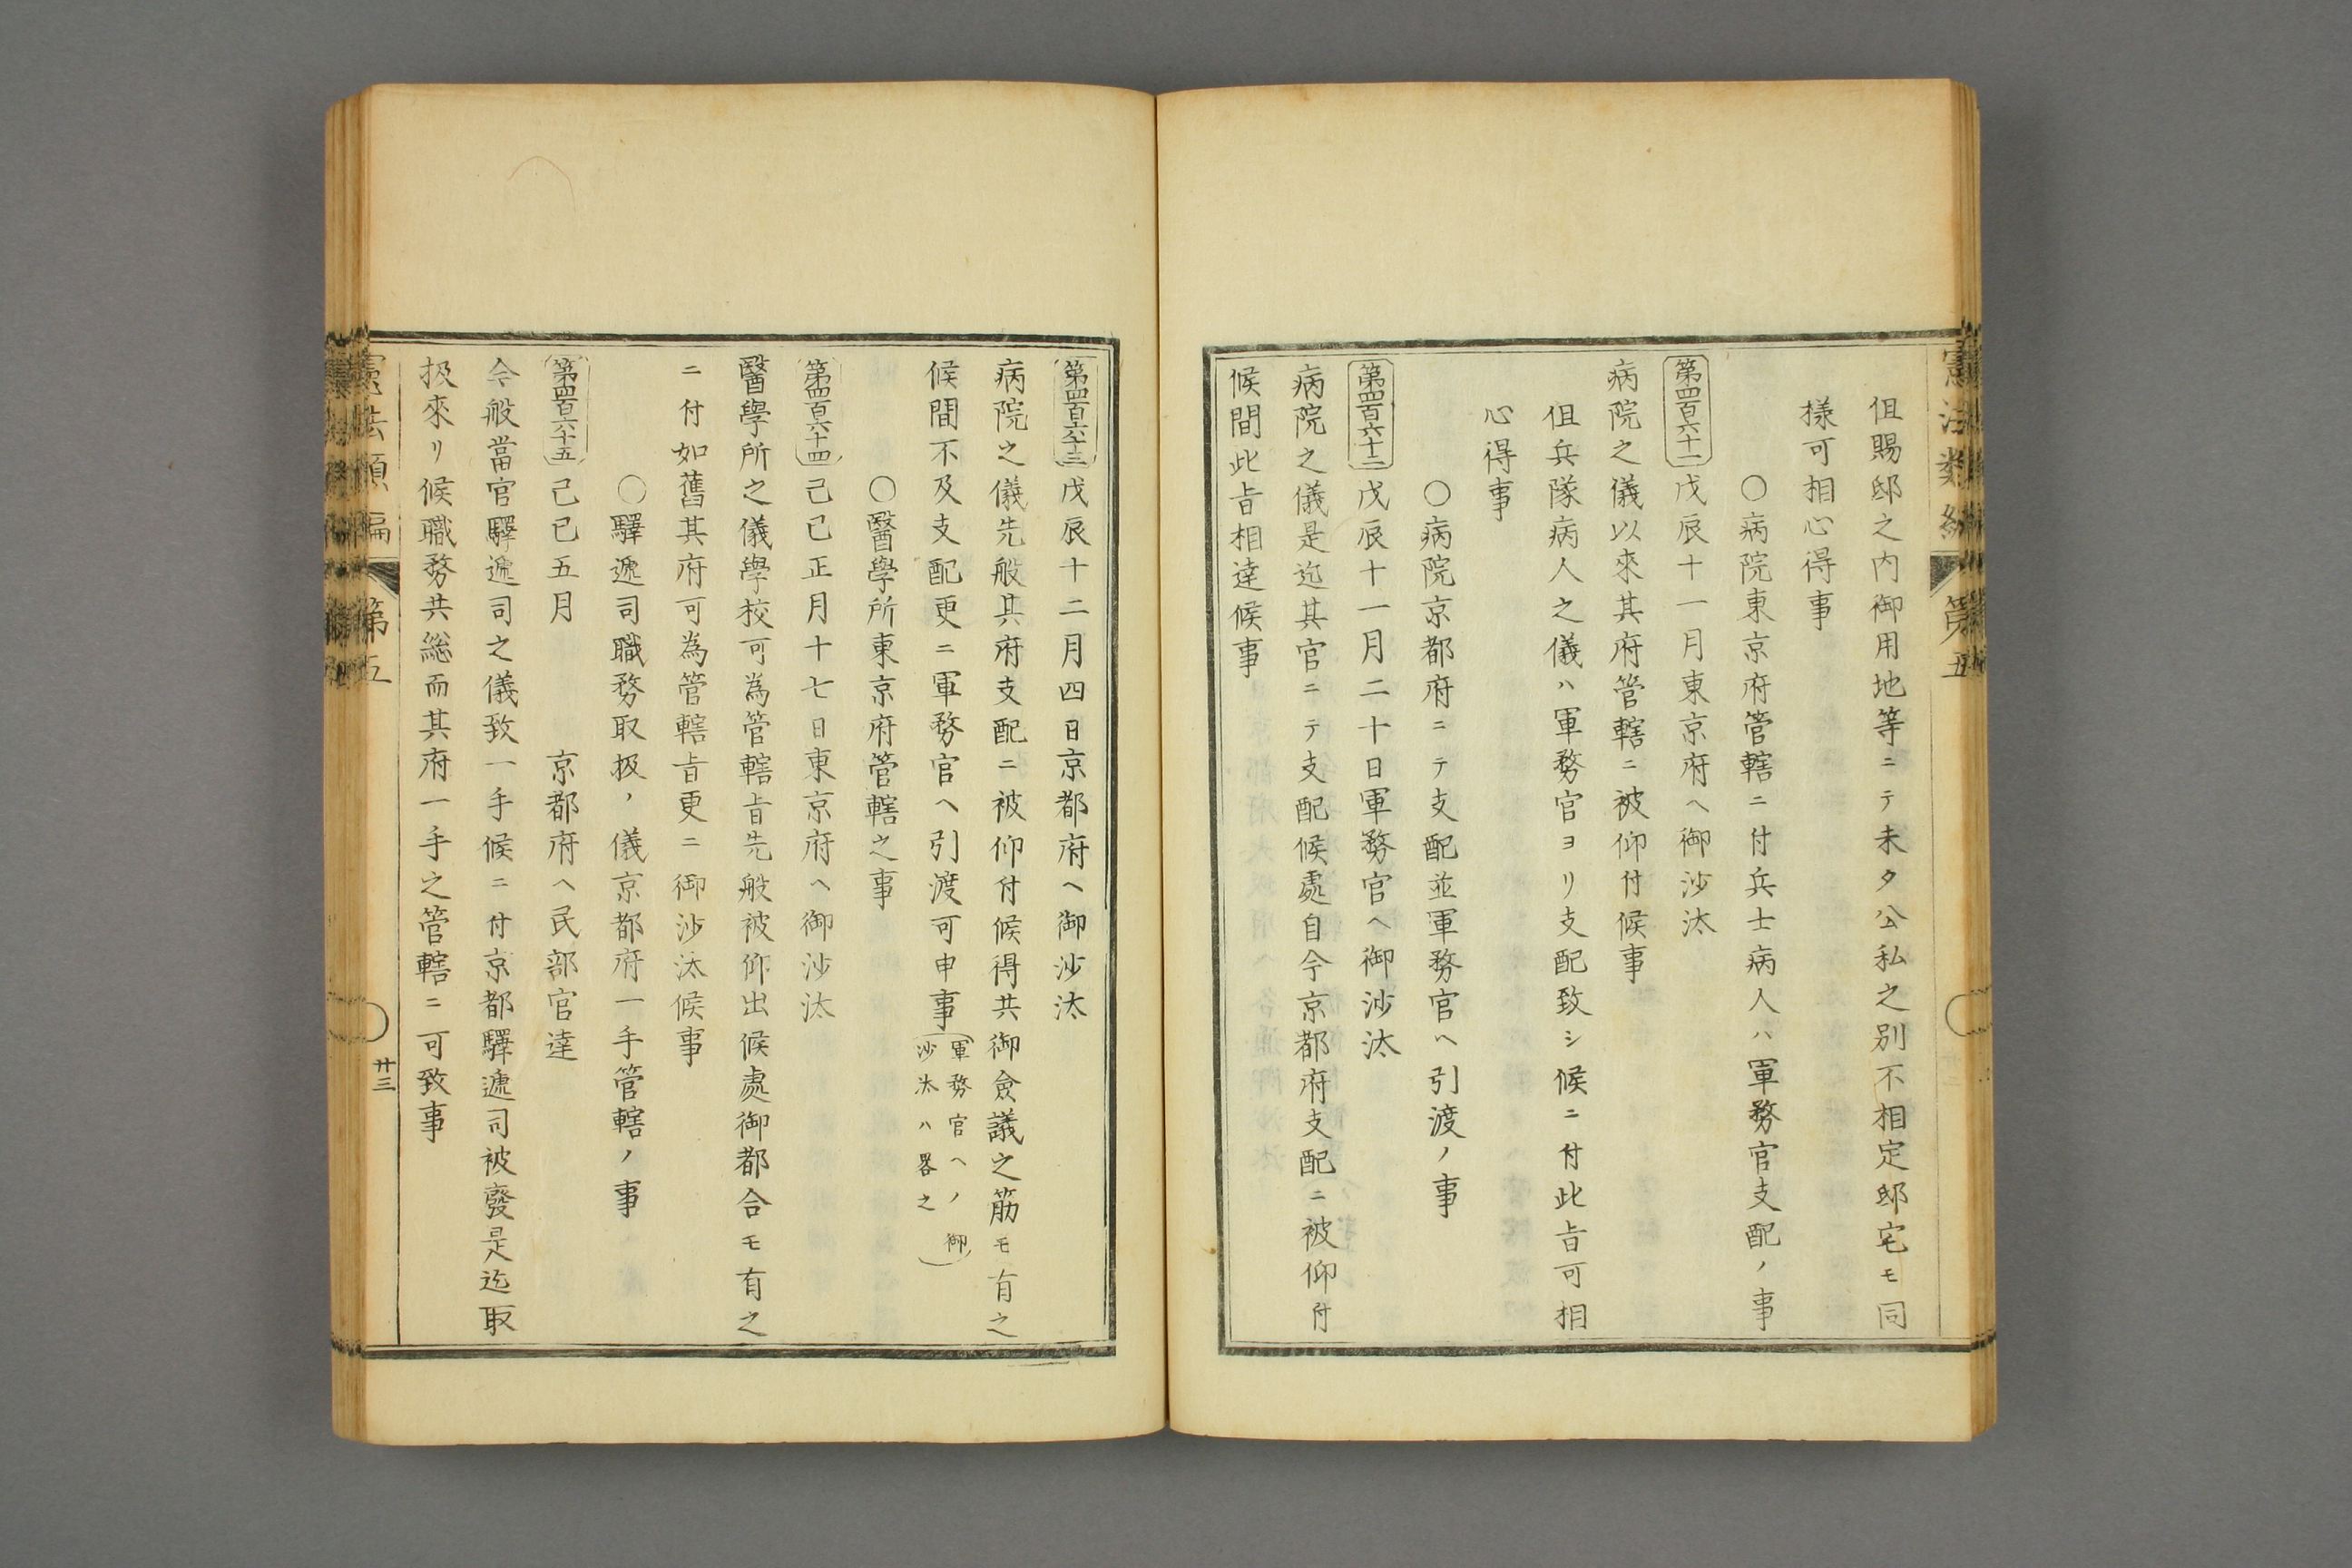 憲法類編
第五
但賜邸之内御用地等ニテ未タ公私之別不相定邸宅モ同
様可相心得事
○病院東京府管轄ニ付兵士病人ハ軍務官支配ノ事
第四百六十一 戊辰十一月東京府ヘ御沙汰
病院之儀以來其府管轄ニ被仰付候事
但兵隊病人之儀ハ軍務官ヨリ支配致シ候ニ付此旨可相
心得事
○病院京都府ニテ支配並軍務官ヘ引渡ノ事
第四百六十二 戊辰十一月二十日軍務官ヘ御沙汰
病院之儀是迄其官ニテ支配候處自今京都府支配ニ被仰付
候間此旨相達候事
第四百六十三 戊辰十二月四日京都府ヘ御沙汰
病院之儀先般其府支配ニ被仰付候得共御僉議之筋モ有之
候間不及支配更ニ軍務官ヘ引渡可申事(軍務官ヘノ御
沙汰ハ畧之)
○醫學所東京府管轄之事
第四百六十四 己巳正月十七日東京府ヘ御沙汰
醫學所之儀學校可為管轄旨先般被仰出候處御都合モ有之
ニ付如舊其府可為管轄旨更ニ御沙汰候事
○驛遞司職務取扱ノ儀京都府一手管轄ノ事
第四百六十五 己巳五月 京都府ヘ民部官達
今般當官驛遞司之儀致一手候ニ付京都驛遞司被廢是迄取
扱來リ候職務共総而其府一手之管轄ニ可致事
憲法類編
第五
廿三